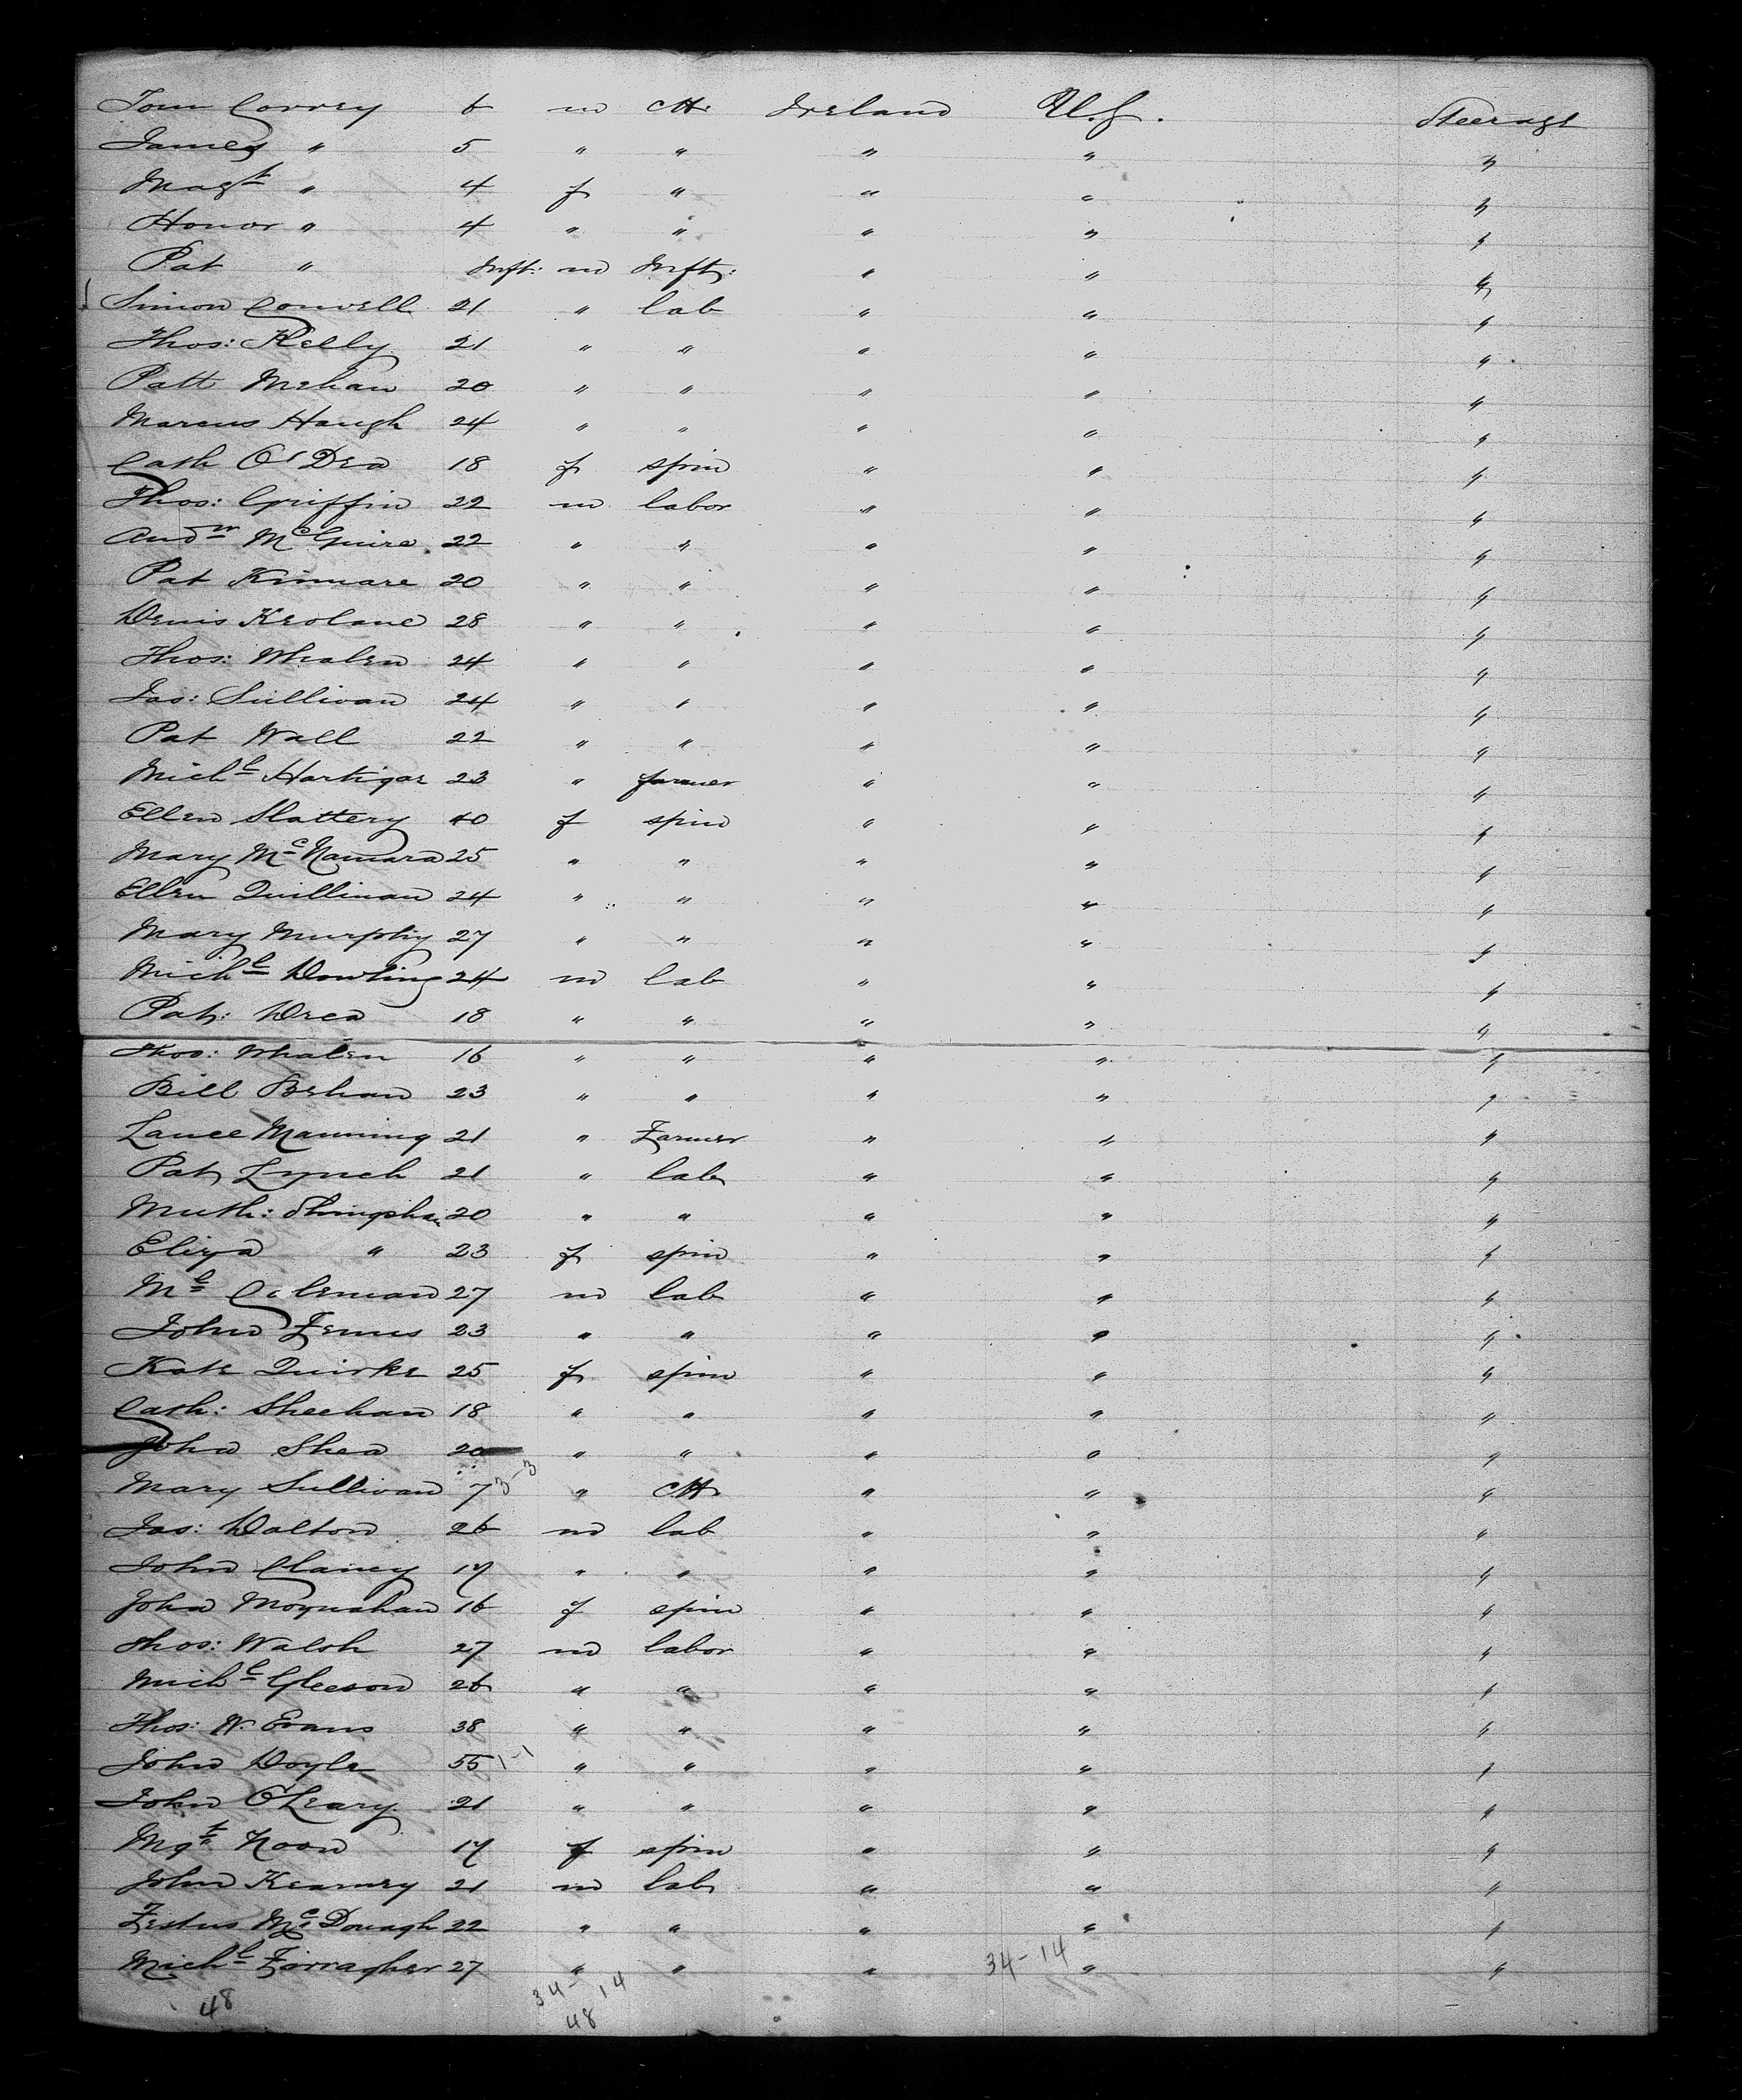 Tom Correy 6 m ch Ireland U.S. Steerage
James " 5 " " " " "
Magt " 4 f " " " "
Honor " 4 " " " " "
Pat " Inft: m Inft: " " "
Simon Conwell 21 " lab " " "
Thos: Kelly 21 " " " " "
Patt Mehan 20 " " " " "
Marcus Haugh 24 " " " " "
Cath O'Dea 18 f spin " " "
Thos: Griffin 22 m labor " " "
Andw McGuire 22 " " " " "
Pat Kinmare 20 " " " " "
Denis Keolane 28 " " " " "
Thos: Whalen 24 " " " " "
Jas: Sullivan 24 " " " " "
Pat Wall 22 " " " " "
Michl Hartigan 23 " farmer " " "
Ellen Slattery 40 f spin " " "
Mary McNamara 25 " " " " "
Ellen Quillinan 24 " " " " "
Mary Murphy 27 " " " " "
Michl Dowling 24 m lab " " "
Pat: Drea 18 " " " " "
Thos: Whalen 16 " " " " "
Bill Behan 23 " " " " "
Lance Manning 21 " Farmer " " "
Pat Lynch 21 " lab " " "
20 " " " " "
Eliza " 23 f spin " " "
Ml Coleman 27 m lab " " "
John 23 " " " " "
Kate Quirke 25 f spin " " "
Cath: Sheehan 18 " " " " "
John Shea 20 " " " " "
Mary Sullivan 7 3-3 " ch " " "
Jas: Dalton 26 m lab " " "
John Clancy 17 " " " " "
John Moynahan 16 f spin " " "
Thos: Walsh 27 m labor " " "
Michl Gleeson 26 " " " " "
Thos: W. Evans 38 " " " " "
John Doyle 55 1-1 " " " " "
John O'Leary 21 " " " " "
Mgt Noon 17 f spin " " "
John Kearney 21 m lab " " "
Festus McDonagh 22 " " " " "
Michl Firragher 27 " " " 34-14 " "
48 34-14
48